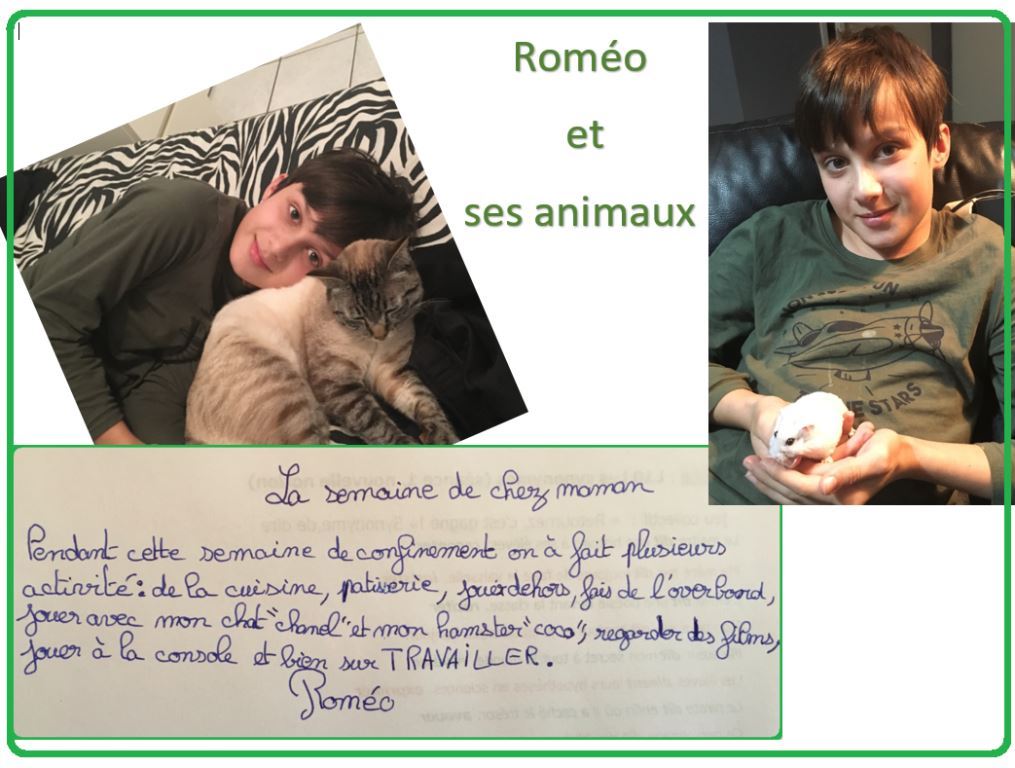 Roméo
et
ses animaux
STARS
La semaine de chez maman
Pendant cette semaine de confinement on à fait plusieurs
activité: de la cuisine, patisserie, jouer dehors, fais de l'overboard,
jouer avec mon chat "chanel" et mon hamster "coco", regarder des films,
jouer à la console et bien sur TRAVAILLER.
Roméo